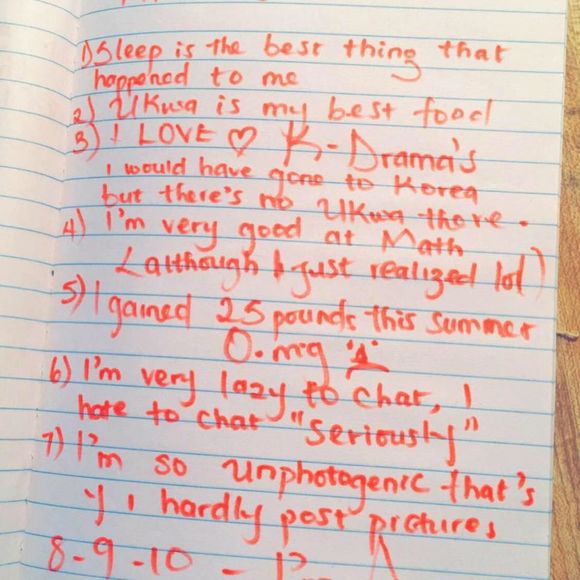 1) Sleep is the best thing that
happened to me
2) Ukwa is my best food
3) I LOVE ♡ K-Drama's
I would have gone to Korea
but there's no Ukwa there.
4) I'm very good at Math
(although I just realized lol)
5) I gained 25 pounds this summer
O.mg
6) I'm very lazy to chat, I
hate to chat "seriously"
7) I'm so unphotogenic that's
y I hardly post pictures
8-9-10 -